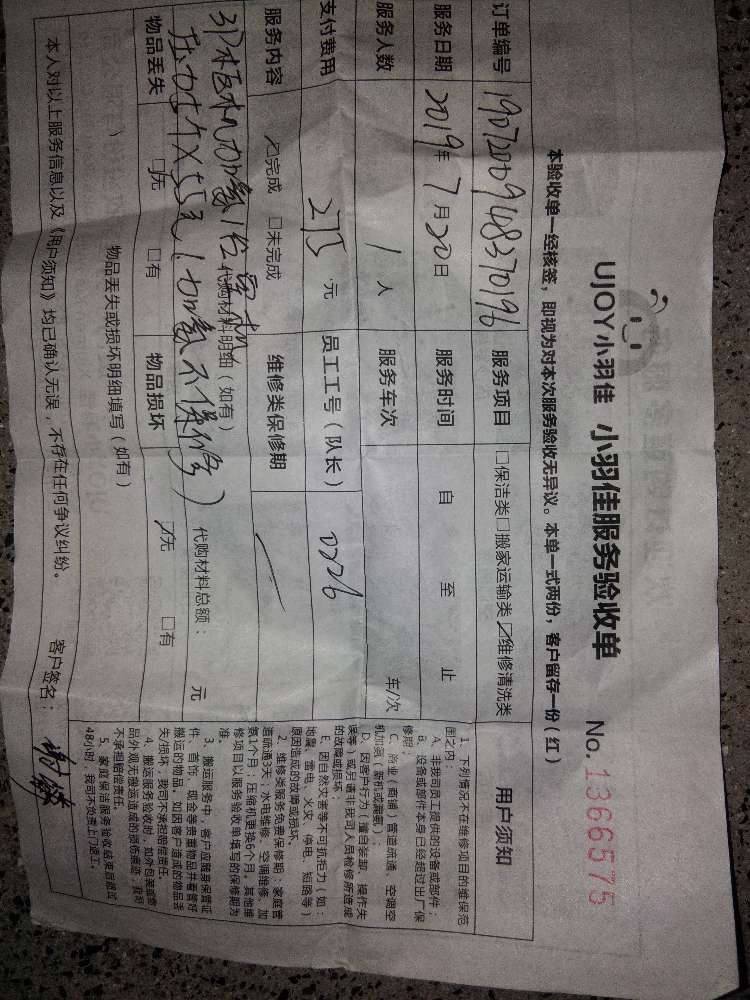 UJOY小羽佳 小羽佳服务验收单 No.1366575
本验收单一经核签，即视为对本次服务验收无异议。本单一式两份，客户留存一份（红）
订单编号 1907200948370196 服务项目 □保洁类□搬家运输类☑维修清洗类
服务日期 2019年7月20日 服务时间 自 至 止
服务人数 1人 服务车次 车/次
支付费用 275元 员工工号（队长） 0226
服务内容 ☑完成 □未完成 维修类保修期
代购材料明细（如有）
3P柜机加氟1台
5×55元（加氟不保修） 代购材料总额： 元
物品丢失 ☑无 □有 物品损坏 ☑无 □有
物品丢失或损坏明细填写（如有）
本人对以上服务信息以及《用户须知》均已确认无误，不存在任何争议纠纷。 客户签名：
用户须知
1、下列情况不在维修项目的维保范
围之内：
A、非我司员工提供的设备或部件；
B、设备或部件本身已经超过出厂保
修期；
C、商业（商铺）管道疏通、空调空
机加氟（新机或漏氟）；
D、因客户行为（擅自装卸、操作失
误等）或应申请非我司人员检修所造成
的故障或损坏
E、因自然灾害等不可抗拒力（如：
地震、雷电、火灾、停电、短路等）
原因造成的故障或损坏。
2、维修类服务免费保修期：家庭管
道疏通3天；水电维修、空调维修、加
氨1个月；压缩机更换6个月。其他维
修项目以服务验收单填写的保修期为
准。
3、搬运服务中，客户应随身保管证
件、首饰、现金等贵重物品并看管好
搬运的物品，如因客户造成的物品丢
失/损坏，我司不承担赔偿责任。
4、搬运服务验收时，如外包装或物
品外观无搬运造成的损伤痕迹，我司
不承担赔偿责任。
5、家庭保洁服务验收结束后超过
48小时，我司不负责上门返工。